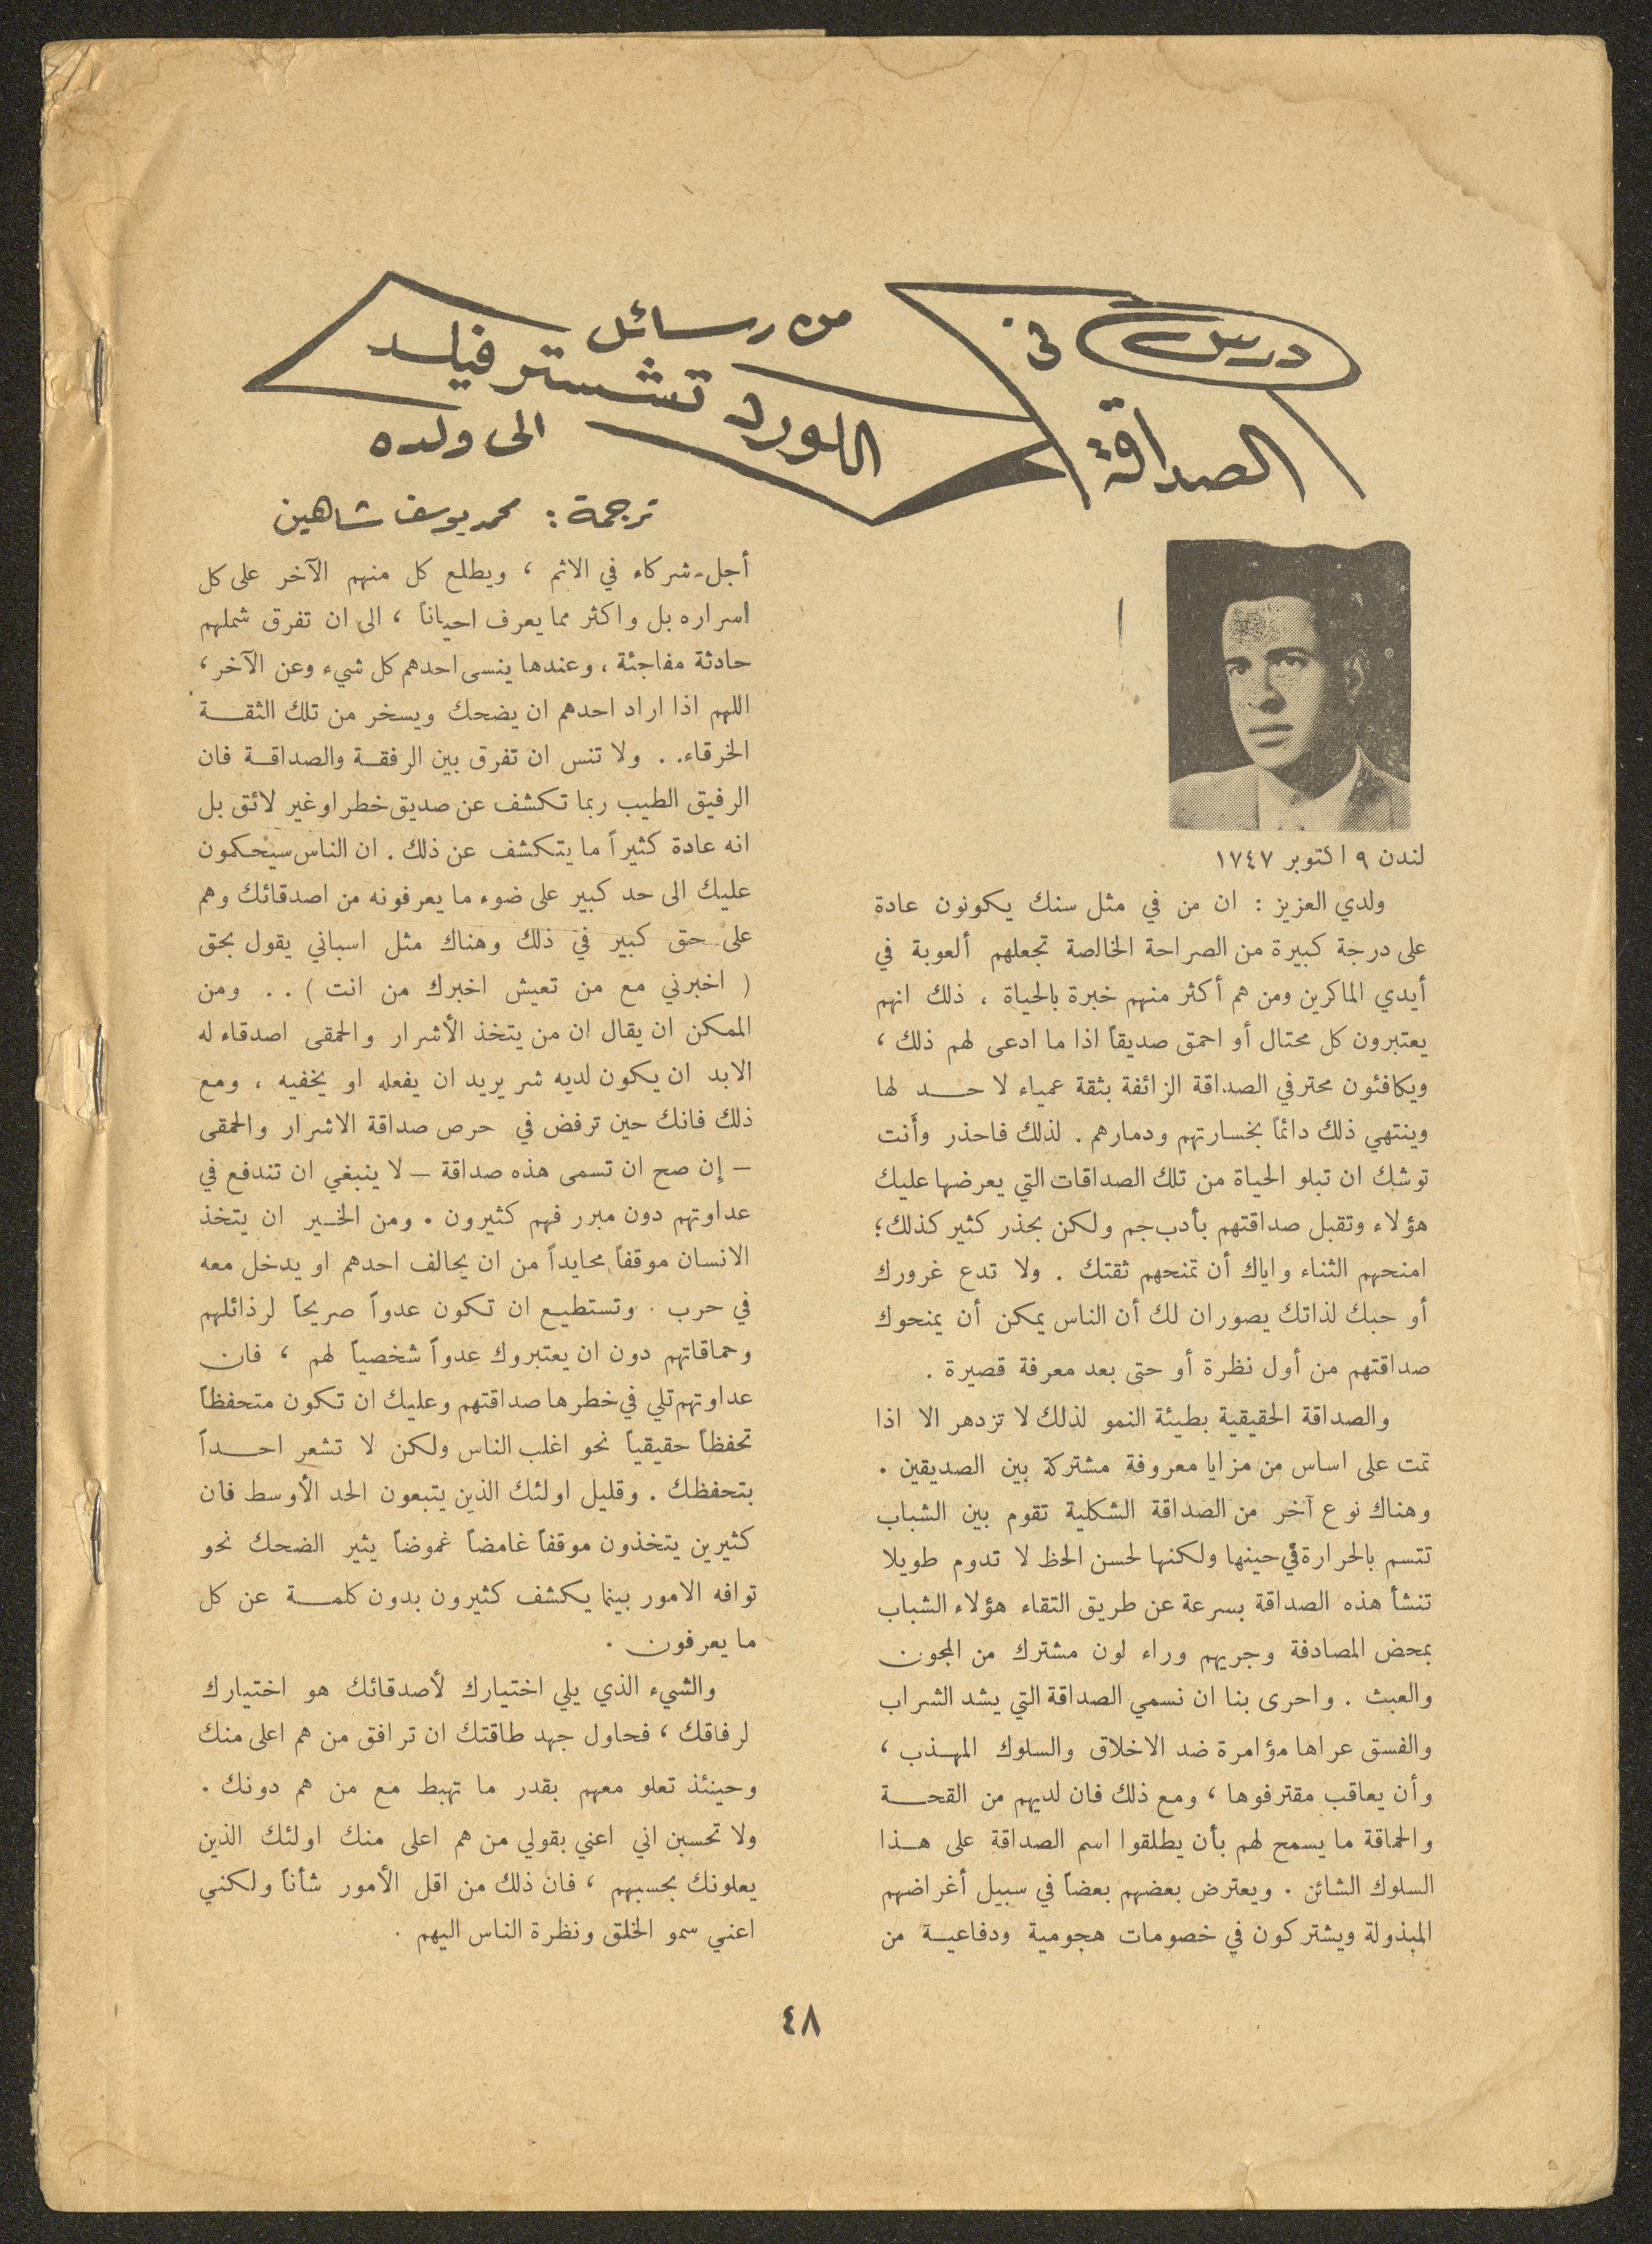 درس في
الصداقة
من رسائل
اللورد تشستر فيلد
الى ولده
ترجمة : محمد يوسف شاهين
لندن ٩ اكتوبر ١٧٤٧
ولدي العزيز : ان من في مثل سنك يكونون عادة
على درجة كبيرة من الصراحة الخالصة تجعلهم ألعوبة في
أيدي الماكرين ومن هم أكثر منهم خبرة بالحياة ، ذلك انهم
يعتبرون كل محتال أو احمق صديقاً اذا ما ادعى لهم ذلك ،
ويكافئون محترفي الصداقة الزائفة بثقة عمياء لا حد لها
وينتهي ذلك دائماً بخسارتهم ودمارهم . لذلك فاحذر وأنت
توشك ان تبلو الحياة من تلك الصداقات التي يعرضها عليك
هؤلاء وتقبل صداقتهم بأدب جم ولكن بحذر كثير كذلك ؛
امنحهم الثناء واياك أن تمنحهم ثقتك . ولا تدع غرورك
أو حبك لذاتك يصوران لك أن الناس يمكن أن يمنحوك
صداقتهم من أول نظرة أو حتى بعد معرفة قصيرة .
والصداقة الحقيقية بطيئة النمو لذلك لا تزدهر الا اذا
تمت على اساس من مزايا معروفة مشتركة بين الصديقين .
وهناك نوع آخر من الصداقة الشكلية تقوم بين الشباب
تتسم بالحرارة في حينها ولكنها لحسن الحظ لا تدوم طويلا
تنشأ هذه الصداقة بسرعة عن طريق التقاء هؤلاء الشباب
بمحض المصادفة وجريهم وراء لون مشترك من المجون
والعبث . واحرى بنا ان نسمي الصداقة التي يشد الشراب
والفسق عراها مؤامرة ضد الاخلاق والسلوك المهذب ،
وأن يعاقب مقترفوها ، ومع ذلك فان لديهم من القحة
والحماقة ما يسمح لهم بأن يطلقوا اسم الصداقة على هذا
السلوك الشائن . ويعترض بعضهم بعضاً في سبيل أغراضهم
المبذولة ويشتركون في خصومات هجومية ودفاعية من
أجل - شركاء في الاثم ، ويطلع كل منهم الآخر على كل
اسراره بل واكثر مما يعرف احياناً ، الى ان تفرق شملهم
حادثة مفاجئة ، وعندها ينسى احدهم كل شيء وعن الآخر ،
اللهم اذا اراد احدهم ان يضحك ويسخر من تلك الثقة
الخرقاء . . ولا تنس ان تفرق بين الرفقة والصداقة فان
الرفيق الطيب ربما تكشف عن صديق خطر او غير لائق بل
انه عادة كثيراً ما يتكشف عن ذلك . ان الناس سيحكمون
عليك الى حد كبير على ضوء ما يعرفونه من اصدقائك وهم
على حق كبير في ذلك وهناك مثل اسباني يقول بحق
( اخبرني مع من تعيش اخبرك من انت ) . . ومن
الممكن ان يقال ان من يتخذ الأشرار والحمقى اصدقاء له
الابد ان يكون لديه شر يريد ان يفعله او يخفيه ، ومع
ذلك فانك حين ترفض في حرص صداقة الاشرار والحمقى
– إن صح ان تسمى هذه صداقة – لا ينبغي ان تندفع في
عداوتهم دون مبرر فهم كثيرون . ومن الخير ان يتخذ
الانسان موقفاً محايداً من ان يحالف احدهم او يدخل معه
في حرب . وتستطيع ان تكون عدواً صريحاً لرذائلهم
وحماقاتهم دون ان يعتبروك عدواً شخصياً لهم ، فان
عداوتهم تلي في خطرها صداقتهم وعليك ان تكون متحفظاً
تحفظاً حقيقياً نحو اغلب الناس ولكن لا تشعر احداً
بتحفظك . وقليل اولئك الذين يتبعون الحد الأوسط فان
كثيرين يتخذون موقفاً غامضاً غموضاً يثير الضحك نحو
توافه الامور بينما يكشف كثيرون بدون كلمة عن كل
ما يعرفون .
والشيء الذي يلي اختيارك لأصدقائك هو اختيارك
لرفاقك ، فحاول جهد طاقتك ان ترافق من هم اعلى منك
وحينئذ تعلو معهم بقدر ما تهبط مع من هم دونك .
ولا تحسبن اني اعني بقولي من هم اعلى منك اولئك الذين
يعلونك بحسبهم ، فان ذلك من اقل الأمور شأناً ولكني
اعني سمو الخلق ونظرة الناس اليهم .
٤٨